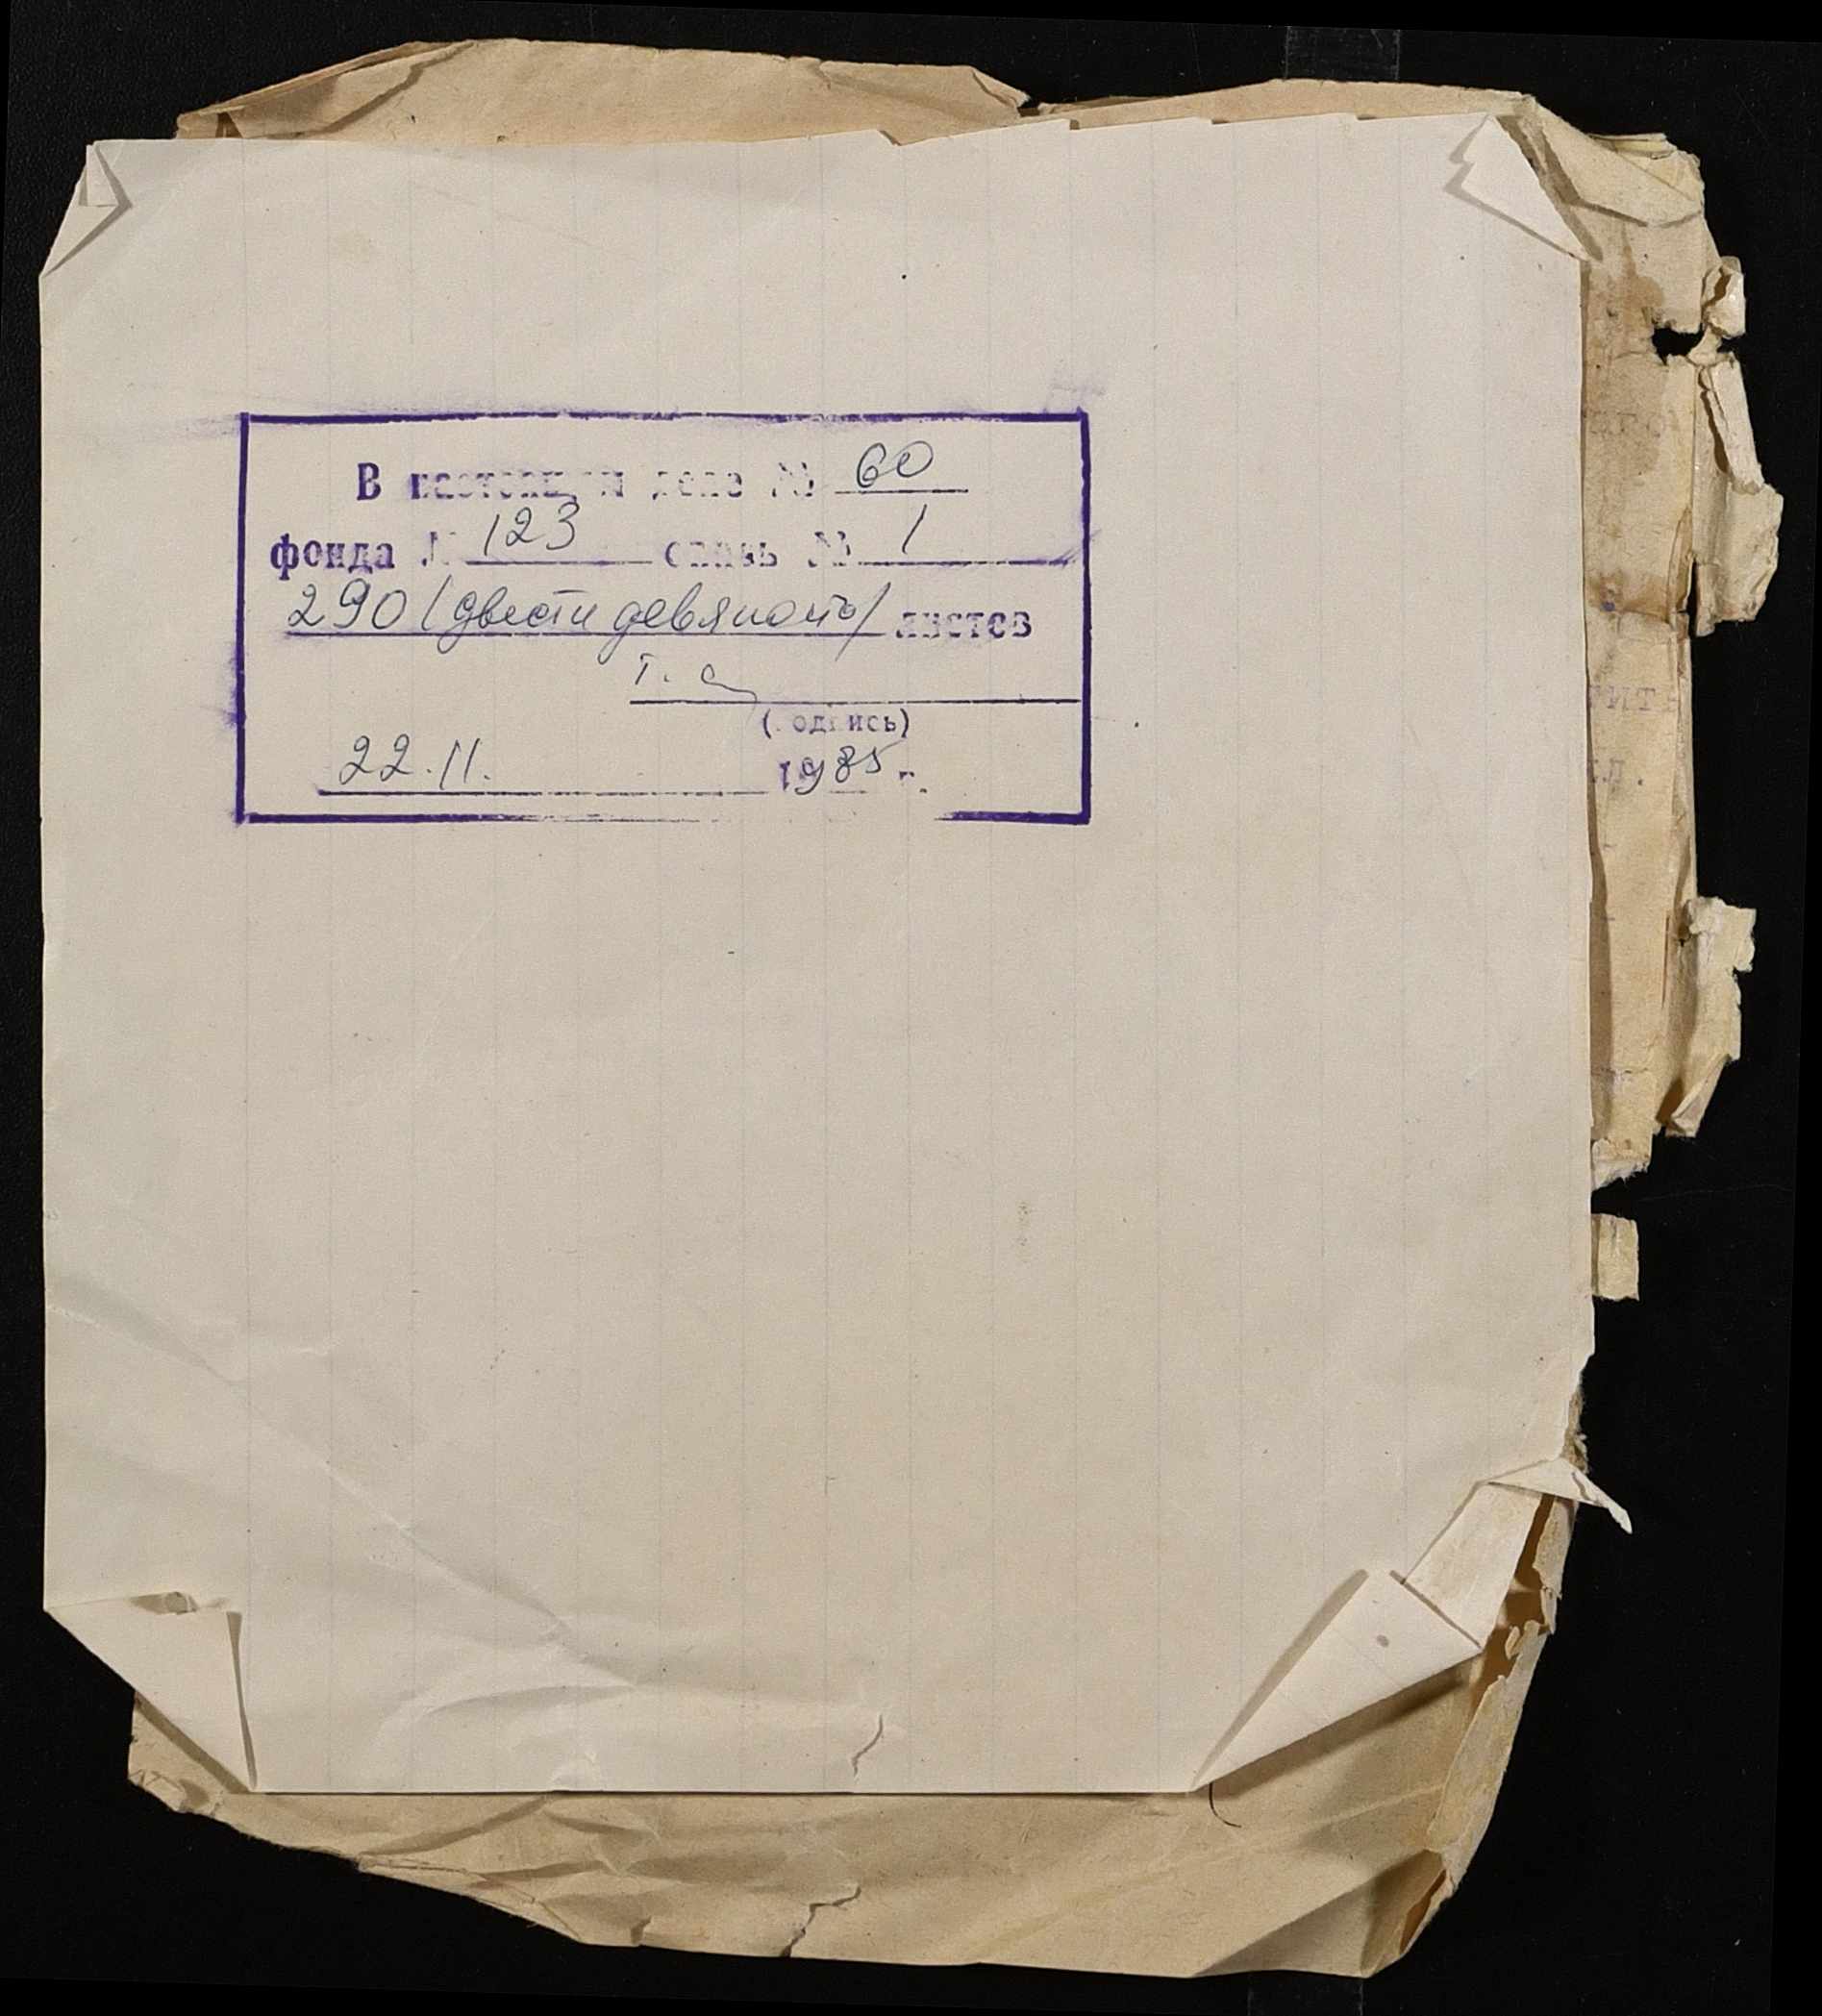 В настоящем деле № 60
фонда № 123 опись № 1
290 (двести девяносто) листов
(подпись)
22.11. 1985 г.